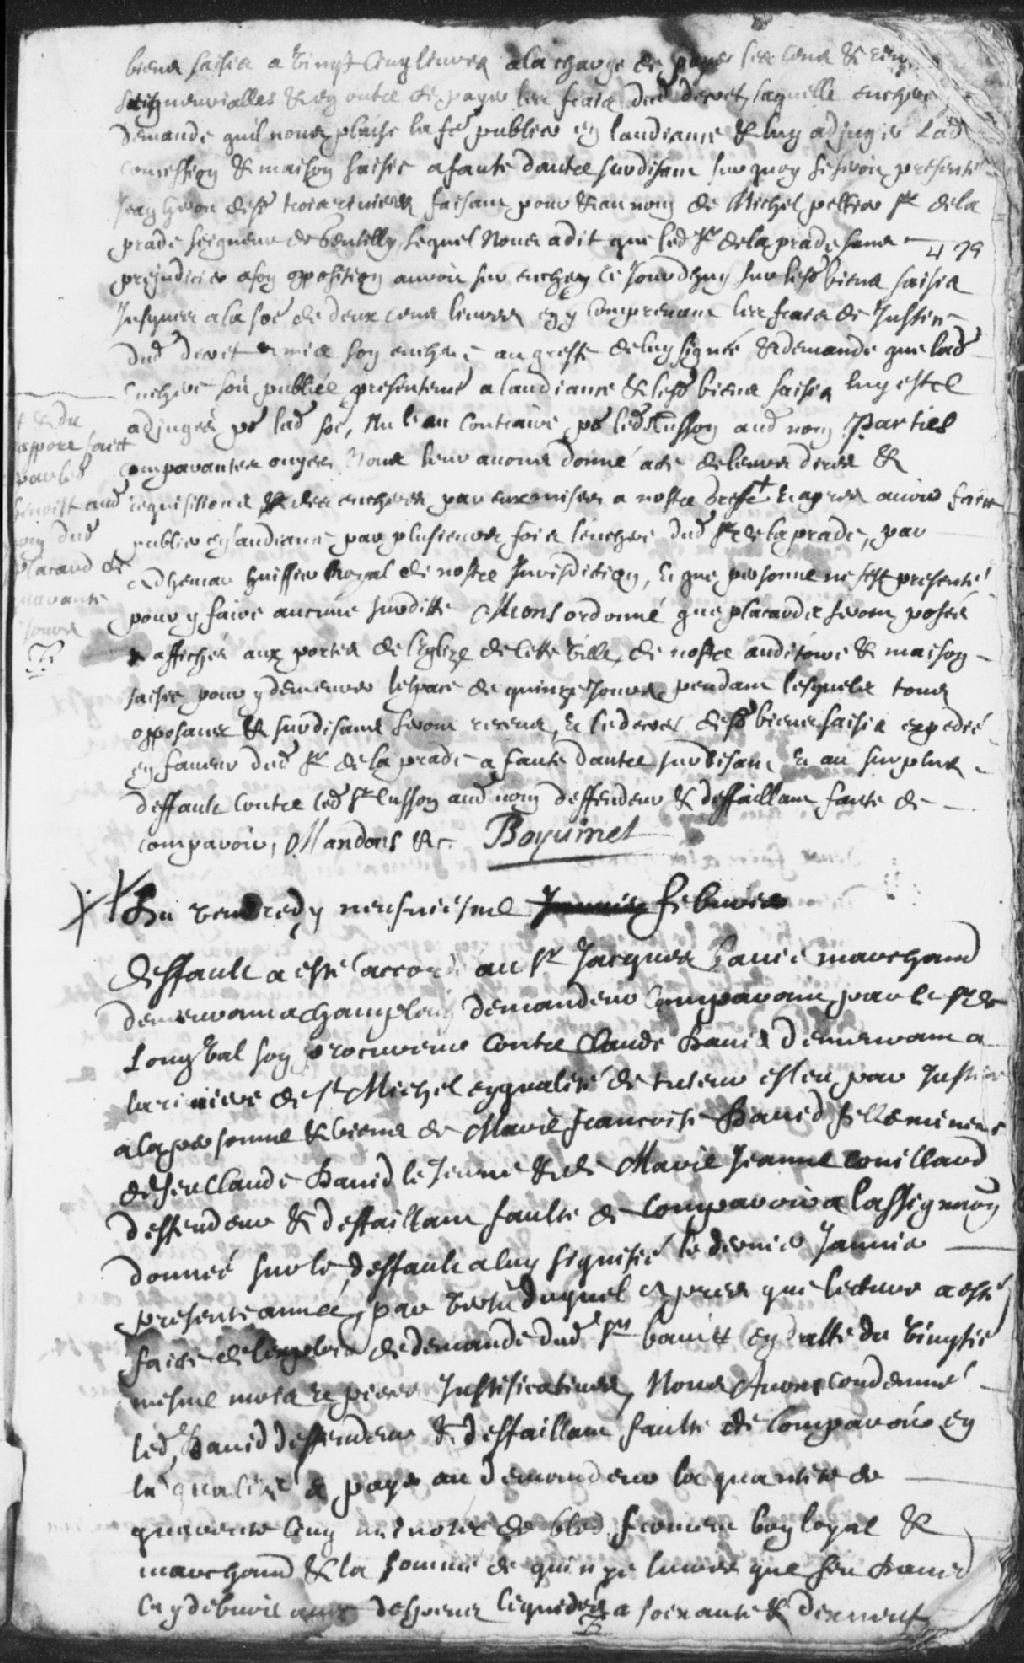 biens saisis a vingt cinq livres a la charge de payer les cens & ren
seigneurialles & en outre de payer les fraix dud decret, laquelle enchere
demande quil nous plaise la fre publier en laudiance & luy adjuger lad
concession & maison saisie a faute dautre surdisant surquoy seseroit presenté
jean heron desd trois rivieres faisant pour & au nom de Michel pelletier sr dela
prade seigneur de Gentilly, lequel Nous a dit que led sr dela prade sans
prejudicier a son opposition auroit sur enchery ce jourdhuy sur lesd biens saisis
Jusques a la soe de deux cens livres en y comprenant les fraix de Justice
dud decret & mis son enchere au greffe deluy signée & demande que lad
enchere soit publiée presentemt a laudiance & lesd biens saisis luy estre
adjugés po lad soe, Au lieu contraire po led Lusson aud nom Parties
comparantes ouyes Nous leur avons donné acte de leurs dires &
requisitions & des encheres par eux mises a nostre greffe & apres avoir faict
publier en laudiance par plusieurs fois lenchere dud sr de la prade, par
Adhemar huissier Royal de nostre Jurisdiction, & que personne ne sest presenté
pour y faire aucune surditte Avons ordonné que placards seront posés
& affichés aux portes de leglize de cette ville, de nostre auditoire & maison
saisie pour y demeurer lespace de quinze jours, pendant lesquels tous
opposans & surdisans seront receus, & le decret desd biens saisis expedié
en faveur dud sr de la prade a faute dautre surdisant & au surplus
deffault contre led sr Lusson aud nom deffendeur & deffaillant faute de
comparoir, Mandons &c. Boyvinet
Du vendredy neufviesme febvrier
deffault a esté accordé au sr Jacques marchand
demeurant a Champlain demandeur comparant par le sr de
Longval son procureur contre Claude David demeurant a
la riviere de st Michel en qualité de tuteur esleu par Justice
a la personne & biens de Marie francoise David fille mineure
de feu Claude David le Jeune & de Marie Jeanne couillard
deffendeur & deffaillant faulte de comparoir a lassignaon
donnée sur le deffault a luy signifié le dernier Janvier
presente année, par vertu duquel apres que lecture a esté
faicte de lexploit de demande dud sr en datte du vingtie
mesme mois & pieces Justificatives, Nous Avons condamné
led David deffendeur & deffaillant faulte de comparoir en
la qualité a payer au demandeur la quantité de
quarente cinq minots de bled froment bon loyal &
marchand & la somme de quinze livres que feu David
luy debvoit despens liquidés a soixante & dixneuf